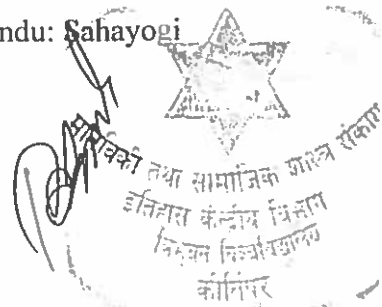 ndu: Sahayogi
मानविकी तथा सामाजिक शास्त्र संकाय
इतिहास केन्द्रीय विभाग
त्रिभुवन विश्वविद्यालय
कीर्तिपुर